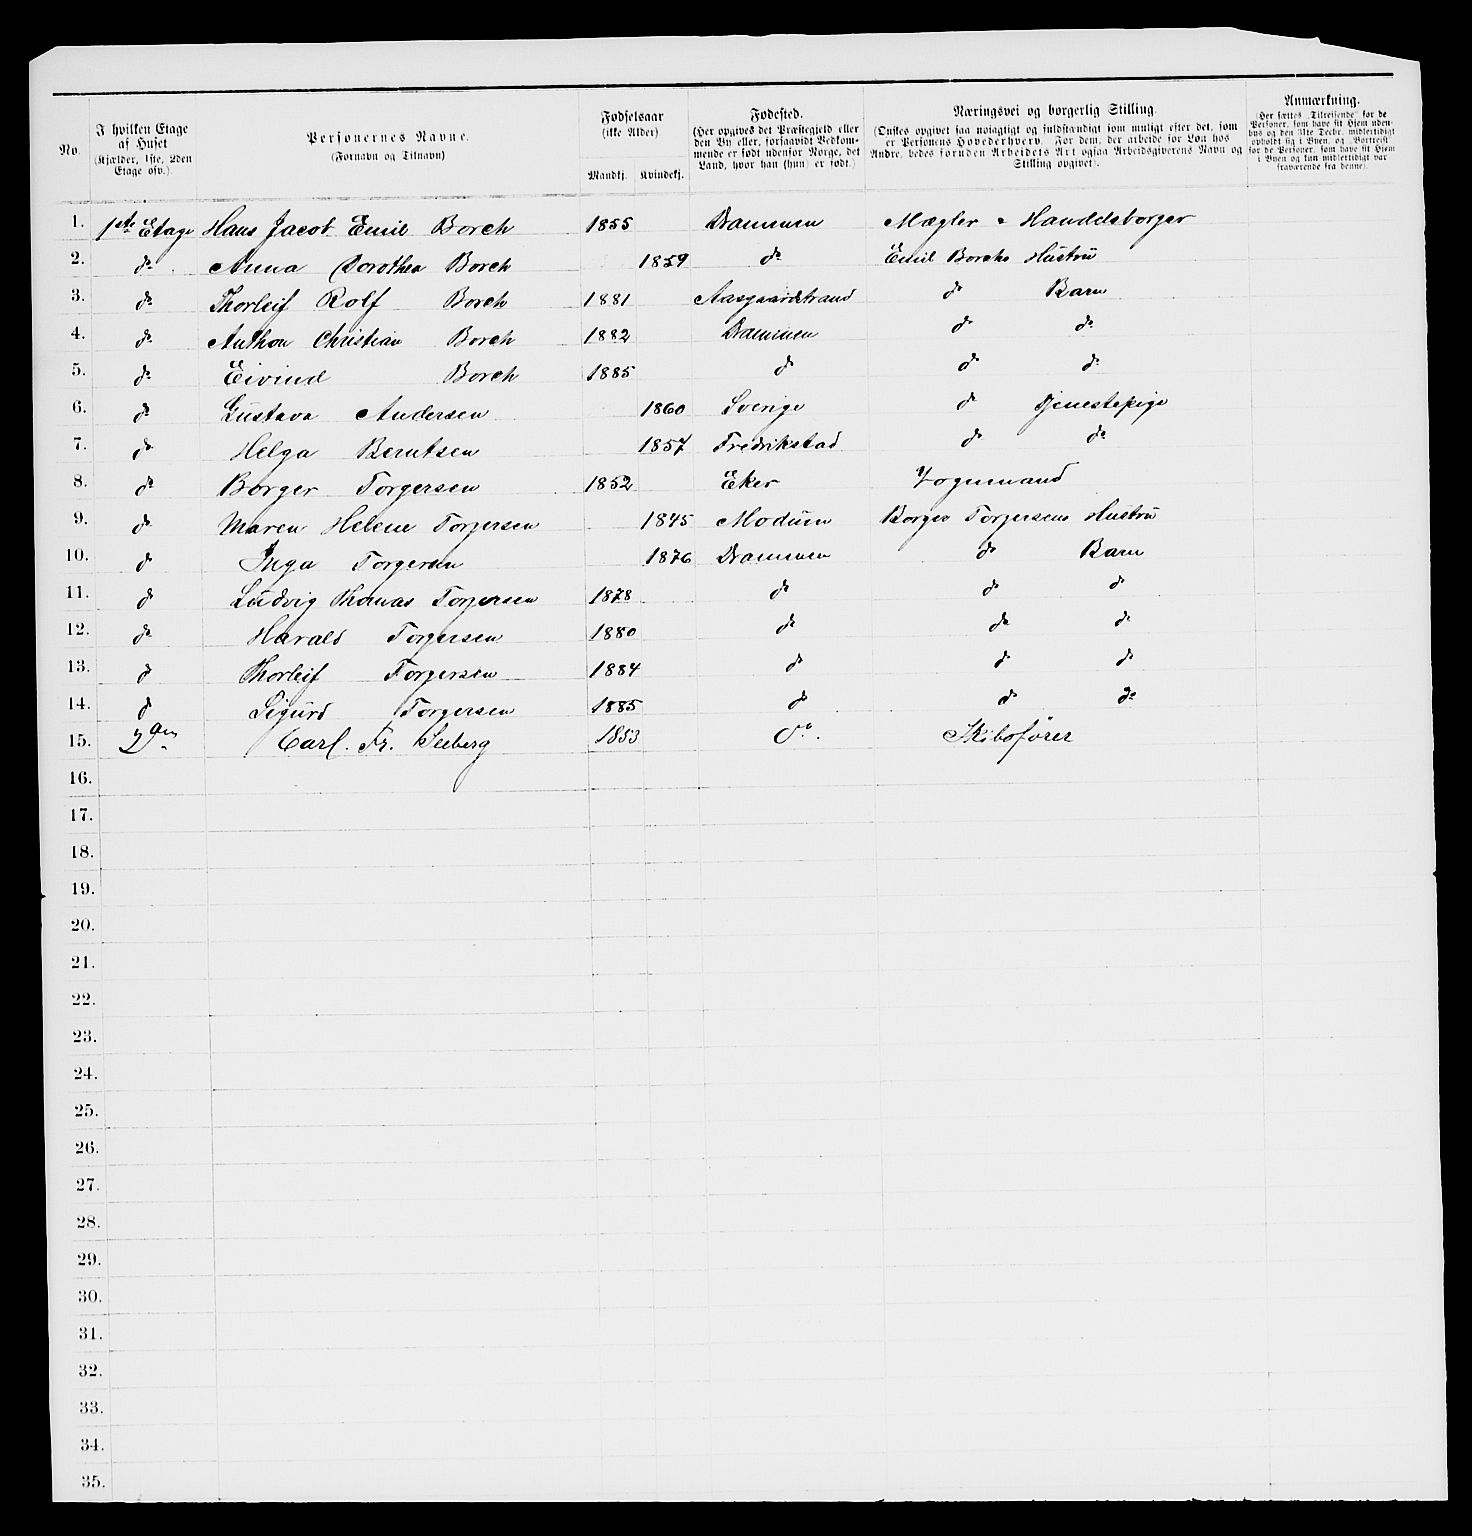 No.
I hvilken Etage
af Huset
(Kjælder, 1ste, 2den
Etage osv.).
Personernes Navne.
(Fornavn og Tilnavn)
Fødselsaar
(ikke Alder)
Mandkj. Kvindekj.
Fødested.
(Her opgives det Præstegjeld eller
den By eller, forsaavidt Vedkom-
mende er født udenfor Norge, det
Land, hvor han (hun) er født.)
Næringsvei og borgerlig Stilling.
(Ønskes opgivet saa nøiagtigt og fuldstændigt som muligt efter det, som
er Personens Hovederhverv. For dem, der arbeide for Løn hos
Andre, bedes foruden Arbeidets Art ogsaa Arbeidsgiverens Navn og
Stilling opgivet).
Anmærkning.
(Her sættes „Tilreisende" for de
Personer, som have sit Hjem uden-
bys og den 31te Decbr. midlertidigt
opholdt sig i Byen, og „Bortreist"
for de Personer, som have sit Hjem
i Byen og kun midlertidigt var
fraværende fra denne).
1. 1ste Etage Hans Jacob Emil Borch 1855 Drammen Mægler & Handelsborger
2. do Anna Dorothea Borch 1859 do Emil Borchs Hustru
3. do Thorleif Rolf Borch 1881 Aasgaardstrand do Barn
4. do Anthon Christian Borch 1882 Drammen do do
5. do Eivind Borch 1885 do do do
6. do Gustava Andersen 1860 Sverige do Tjenestepige
7. do Helga Berntsen 1857 Fredrikstad do do
8. do Borger Torgersen 1852 Eker Vognmand
9. do Maren Helene Torgersen 1845 Modum Borger Torgersens Hustru
10. do Inga Torgersen 1876 Drammen do Barn
11. do Ludvig Thomas Torgersen 1878 do do do
12. do Harald Torgersen 1880 do do do
13. do Thorleif Torgersen 1884 do do do
14. do Sigurd Torgersen 1885 do do do
15. 2den Carl. Fr. Seeberg 1853 do. Skibsfører
16.
17.
18.
19.
20.
21.
22.
23.
24.
25.
26.
27.
28.
29.
30.
31.
32.
33.
34.
35.